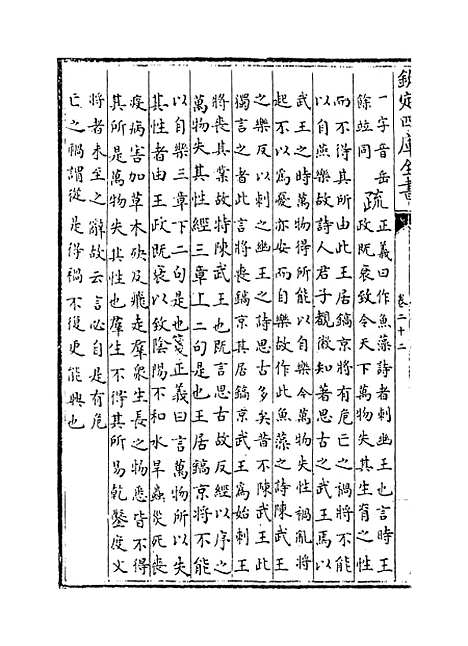 欽定四庫全書
卷二十二
一字音岳疏正義曰作魚藻詩者刺幽王也言時王
餘竝同政既衰致令天下萬物失其生育之性
而不得其所由此王居鎬京將有危亡之禍將不能
以自燕樂故詩人君子覩微知著思古之武王焉以
武王之時萬物得所能以自樂今萬物失性禍亂將
起不以為憂亦安而自樂故作此魚藻之詩陳武王
之樂反以刺之幽王之詩思古多矣皆不陳武王此
獨言之者此言將喪鎬京其居鎬京武王為始刺王
將喪其業故特陳武王也既言思古故反經以序之
萬物失其性經三章上二句是也王居鎬京將不能
以自樂三章下二句是也箋正義曰言萬物所以失
其性者由王政既衰以致陰陽不和水旱蟲災死喪
疾病害加草木殃及飛走羣衆生長之物悉皆不得
其所是萬物失其性也羣生不得其所易乾鑿度文
將者未至之辭故云言必自是有危
亡之禍謂從是得禍不復更能興也